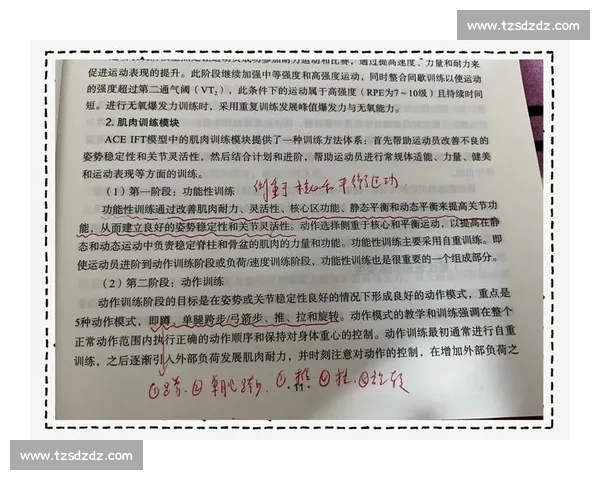 www.tzsdzdz.com
促进运动表现的提升。此阶段继续加强中等强度和高强度运动，同时整合间歇训练以使运动
的强度超过第二通气阈（VT₂），此条件下的运动属于高强度（RPE为7～10级）且持续时间
短。进行无氧爆发力训练时，采用重复训练发展峰值爆发力与无氧能力。
2. 肌肉训练模块
ACE IFT模型中的肌肉训练模块提供了一种训练方法体系：首先帮助运动员改善不良的
姿势稳定性和关节灵活性，然后结合计划和进阶，帮助运动员进行常规体适能、力量、健美
和运动表现等方面的训练。
（1）第一阶段：功能性训练
侧重于核心和平衡运动
功能性训练通过改善肌肉耐力、灵活性、核心区功能、静态平衡和动态平衡来提高关节功
能，从而建立良好的姿势稳定性和关节灵活性。动作选择侧重于核心和平衡运动，以提高在静
态和动态运动中负责稳定脊柱和骨盆的肌肉的力量和功能。功能性训练主要采用自重训练。即
使运动员进阶到动作训练阶段或负荷/速度训练阶段，功能性训练也是很重要的一个组成部分。
（2）第二阶段：动作训练
动作训练阶段的目标是在姿势或关节稳定性良好的情况下形成良好的动作模式，重点是
5种动作模式，即蹲、单腿跨步/弓箭步、推、拉和旋转。动作模式的教学和训练强调在整个
正常动作范围内执行正确的动作顺序和保持对身体重心的控制。动作训练最初通常进行自重
训练，之后逐渐引入外部负荷发展肌肉耐力，并时刻注意对动作的控制，在增加外部负荷之
www.tzsdzdz.com